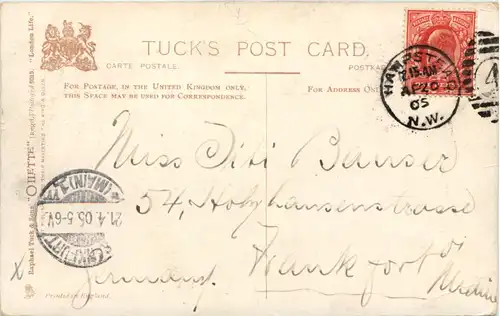 TUCK'S POST CARD.
CARTE POSTALE.
POSTKAR
FOR POSTAGE, IN THE UNITED KINGDOM ONLY,
THIS SPACE MAY BE USED FOR CORRESPONDENCE.
FOR ADDRESS ON
HAMPSTEAD
7.15 AM
AP 20
05
N.W.
4
Miss Titi Banser
54, Holzhausenstrasse
Frankfort o/
Germany.
(MAIN) 1
21.4.05.5-6V.
FRANKFURT
X
Printed in England.
Raphael Tuck & Sons' "OILETTE"
"London Life."